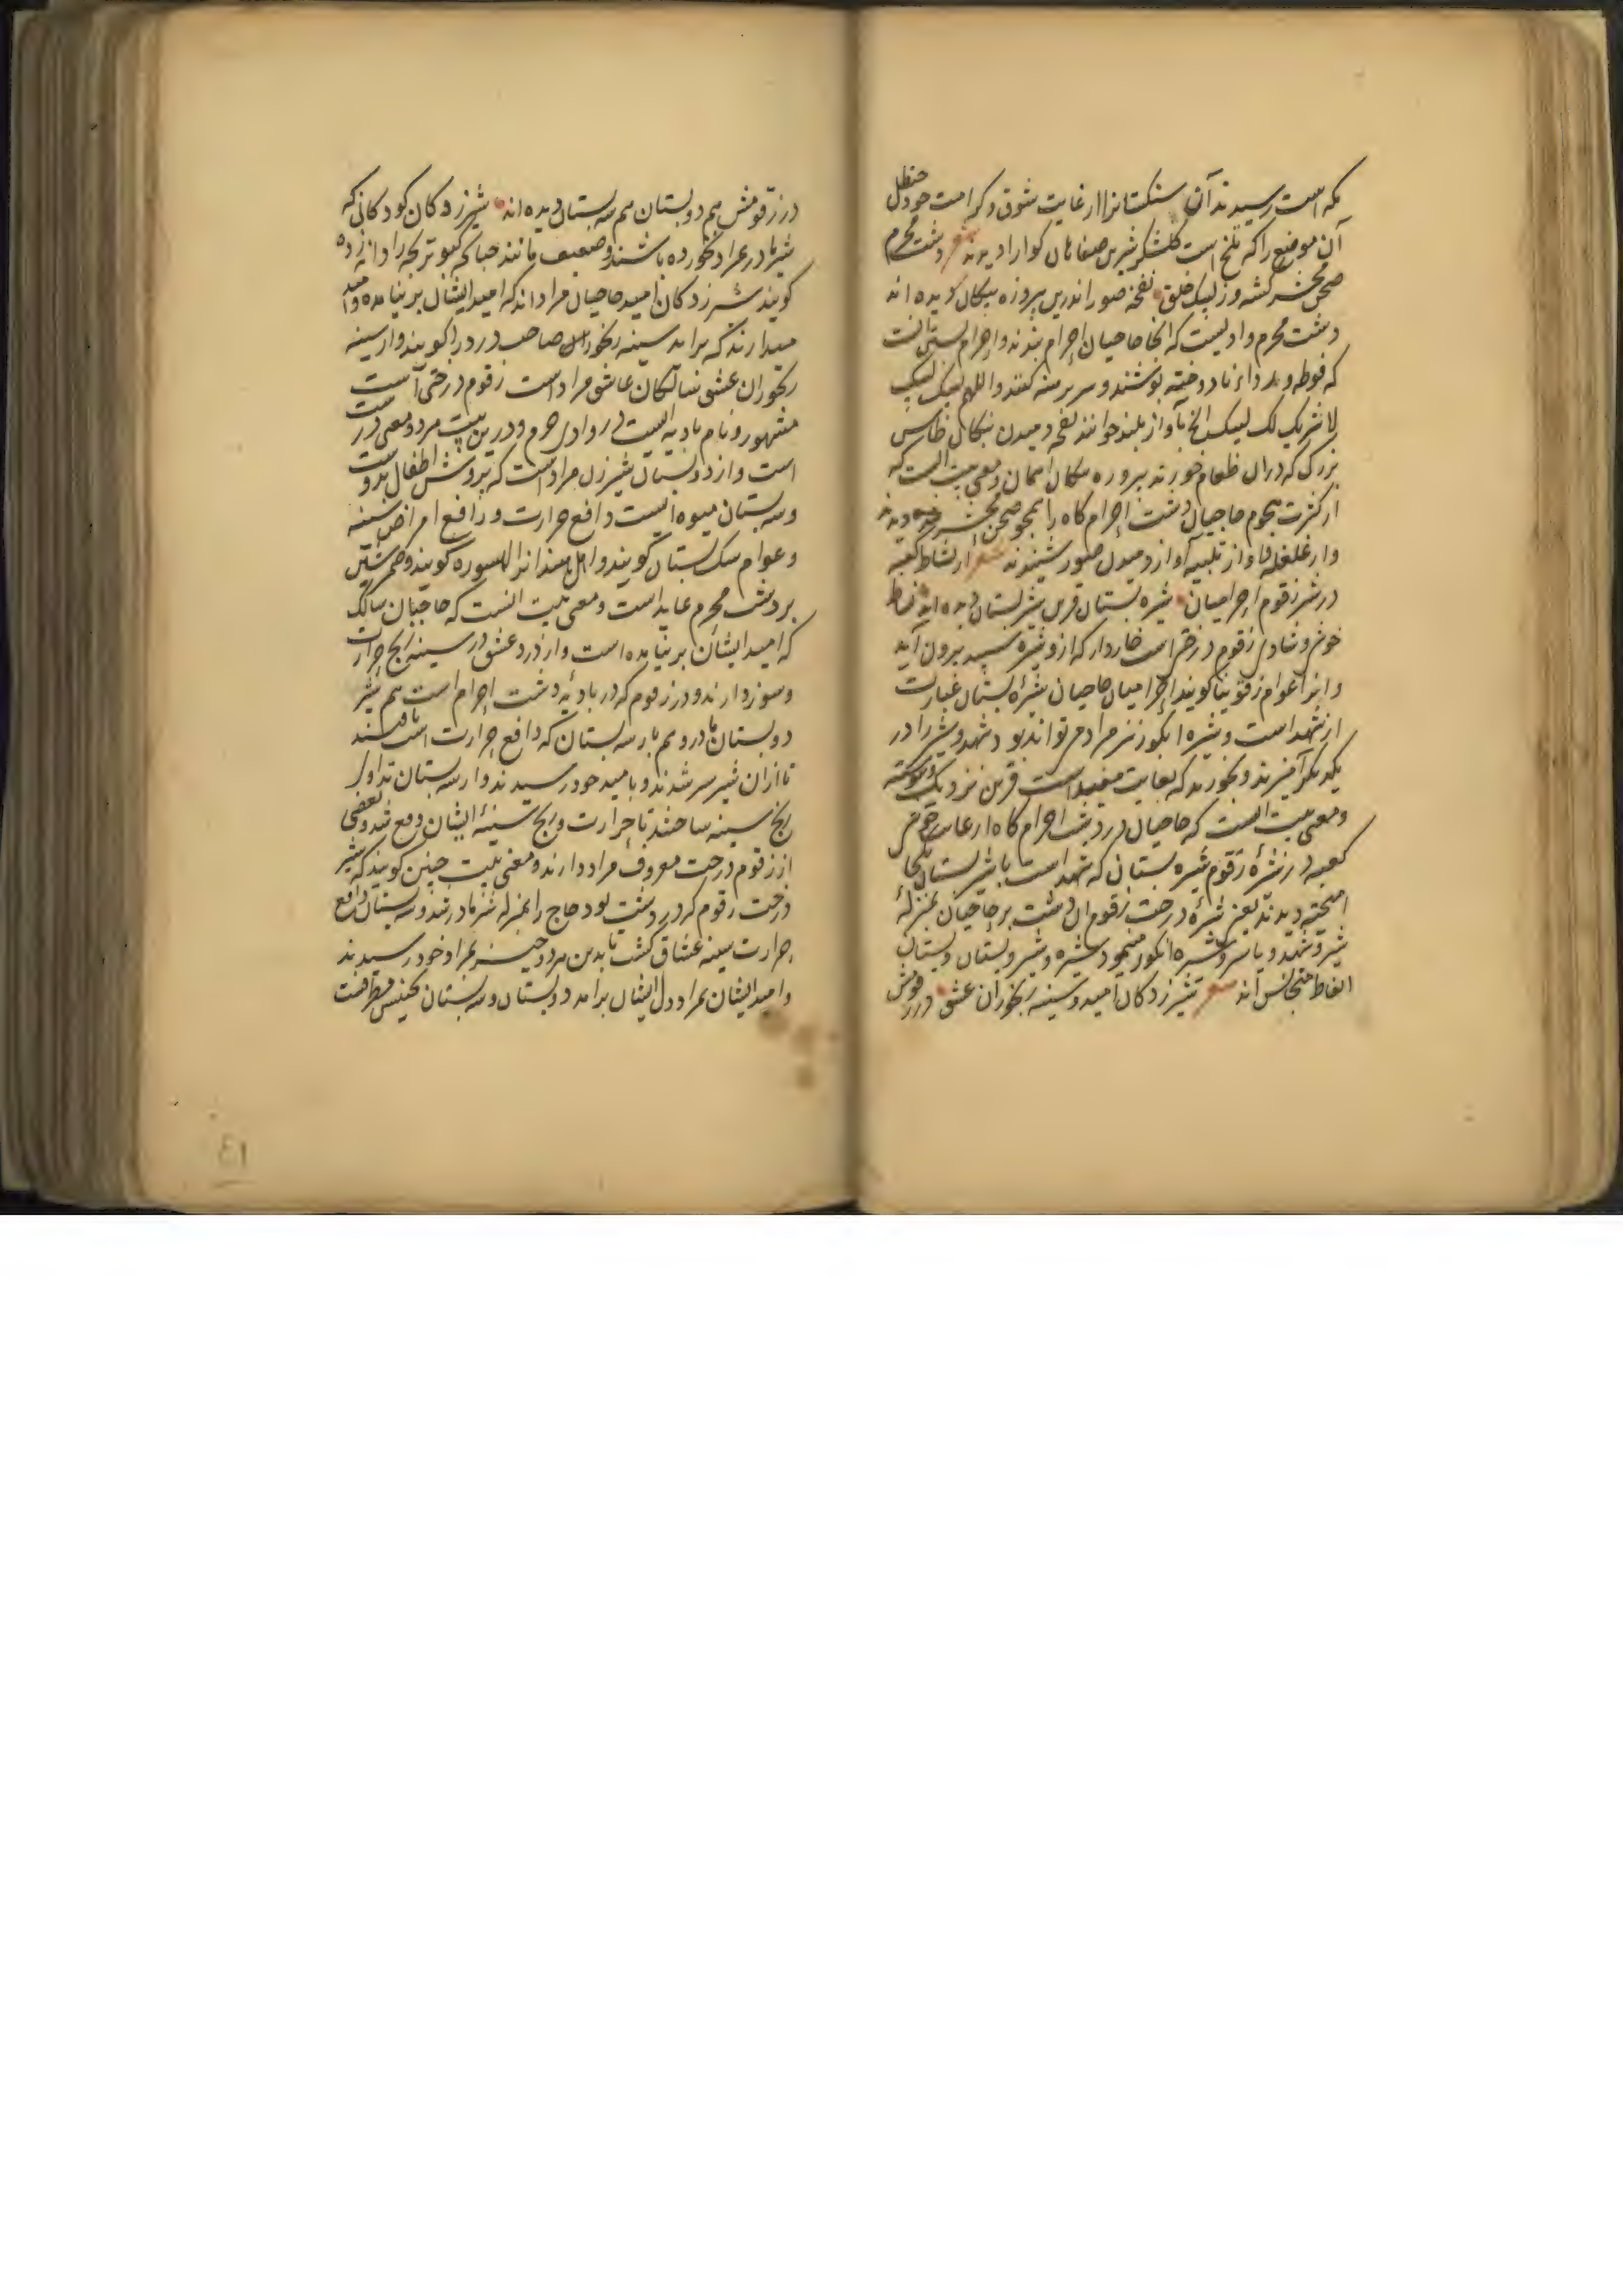 مکه است رسیدند آن سنکستانرا از غایت شوق و کرامت خود حنظل
آن موضع را که تلخ است کلشکر شیرین صفاهان کوارا دیدند شعر دشت محرم
صحن محشر کشته وز لبیک خلق نفخه صور اندرین پیروزه پنکان دیده اند
دشت محرم وادیست که انجا حاجیان احرام بندند و احرام بستن انست
که فوطه و ردای نادوخته پوشند و سر برهنه کنند و اللهم لبیک لبیک
لا شریک لک لبیک الخ بآواز بلند خوانند نفخه دمیدن پنکان طاس
بزرک که دران طعام خورند پیروزه پنکان اسمان و معنی بیت انست که
از کثرت هجوم حاجیان دشت احرام کاه را همچو صحن محشر دیدند
و از غلغله آواز تلبیه آواز دمیدن صور شنیدند شعر از نشاط کعبه
در شیر زقوم احرامیان شیره بستان قرین شیر بستان دیده اند نشاط
خوشی و شادی زقوم درختی است خاردار که ازو شیره سپید بیرون آید
و انرا عوام زقونیا کویند احرامیان حاجیان شیره بستان عبارت
از شهد است و شیره انکور نیز مراد می تواند بود و شهد و شیر را در
یکدیکر آمیزند و بخورند که بغایت مفید است قرین نزدیک و پیوسته
و معنی بیت انست که حاجیان در دشت احرام کاه از غایت خوشی
کعبه در شیره زقوم شیره بستان که شهد است با شیر بستان یکجا
امیخته دیدند یعنی شیره درخت زقوم ان دشت بر حاجیان بمنزله
شیر و شهد و یا شیر و شیره انکور مینمود و شیره و شیر و بستان و پستان
الفاظ متجانس اند شعر شیرزدکان امید و سینه رنجوران عشق در زقومش
در زقومش هم دو پستان هم سه پستان دیده اند شیرزدکان کودکانی که
شیر مادر بمراد نخورده باشند و ضعیف مانند چنانکه کبوتر بچه را دانه زده
کویند شیرزدکان امید حاجیان مراد اند که امید ایشان بر نیامده و امید
میدارند که براید سینه رنجوران صاحب درد را کویند و از سینه
رنجوران عشق سالکان عاشق مراد است زقوم درختی است
مشهور و نام بادیه ایست در وادی حرم و درین بیت هر دو معنی درست
است و از دو پستان شیر زن مراد است که پرورش اطفال بدوست
و سه پستان میوه ایست دافع حرارت و رافع امراض سینه
و عوام سک پستان کویند و اهل هند انرا لهسوره کویند و ضمیر شین
بر دشت محرم عاید است و معنی بیت انست که حاجیان سالک
که امید ایشان بر نیامده است و از درد عشق در سینه رنج حرارت
و سوز دارند و در زقوم که در بادیه دشت احرام است هم شیر
دو پستان مادر و هم بار سه پستان که دافع حرارت است یافتند
تا ازان شیر سیر شدند و بامید خود رسیدند و از سه پستان تداوی
رنج سینه ساختند تا حرارت و رنج سینه ایشان دفع شد و بعضی
از زقوم درخت معروف مراد دارند و معنی بیت چنین کویند که شیر
درخت زقوم که در دشت بود حاج را بمنزله شیر مادر شد و سه پستان دافع
حرارت سینه عشاق کشت تا بدین هر دو چیز بمراد خود رسیدند
و امید ایشان بمراد دل ایشان برامد دو پستان و سه پستان تجنیس مطرفست
٤١